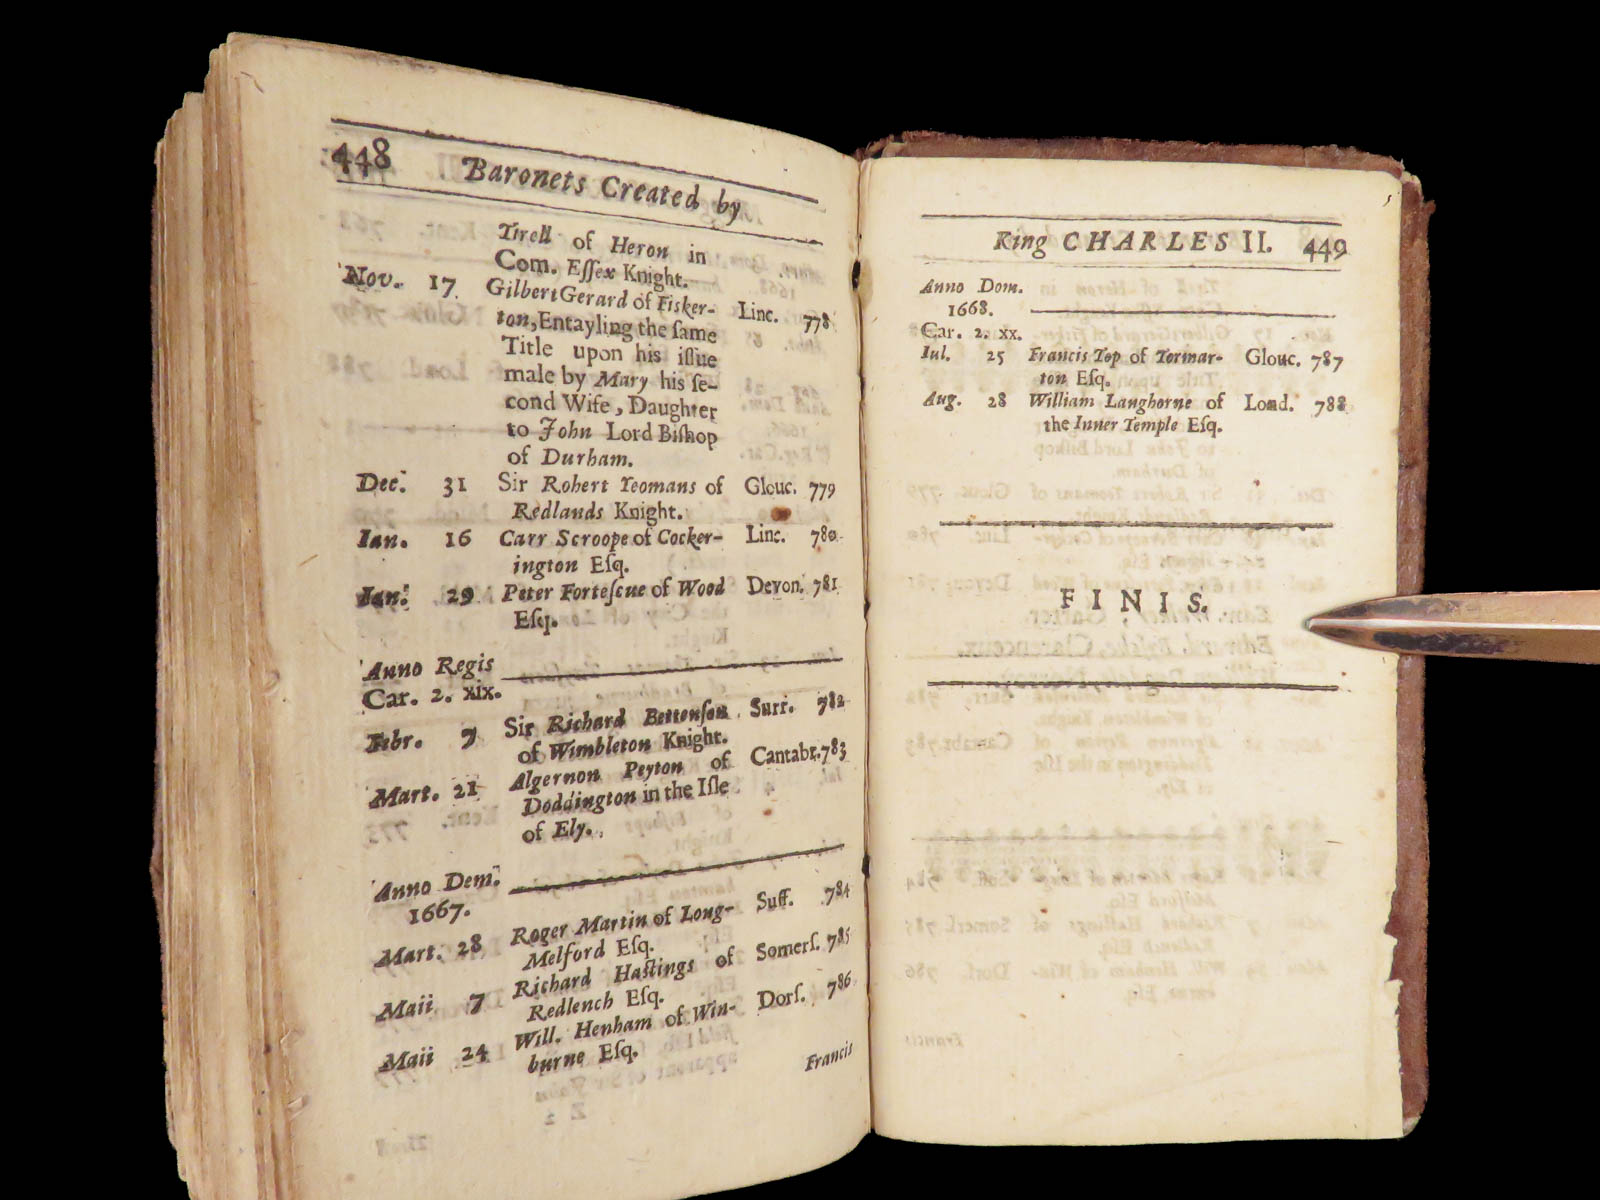 448
Baronets Created by
Tirell of Heron in
Com. Eſſex Knight.
Nov. 17 Gilbert Gerard of Fisker- Linc. 778
ton, Entayling the ſame
Title upon his iſſue
male by Mary his ſe-
cond Wife, Daughter
to John Lord Biſhop
of Durham.
Dec. 31 Sir Robert Yeomans of Glouc. 779
Redlands Knight.
Ian. 16 Carr Scroope of Cocker- Linc. 780
ington Eſq.
Ian. 29 Peter Forteſcue of Wood Devon. 781
Eſq.
Anno Regis
Car. 2. xix.
Febr. 7 Sir Richard Bettenſon Surr. 782
of Wimbleton Knight.
Mart. 21 Algernon Peyton of Cantabr. 783
Doddington in the Iſle
of Ely.
Anno Dom.
1667.
Mart. 28 Roger Martin of Long- Suff. 784
Melford Eſq.
Maii 7 Richard Haſtings of Somerſ. 785
Redlench Eſq.
Maii 24 Will. Henham of Win- Dorſ. 786
burne Eſq.
Francis
King CHARLES II. 449
Anno Dom.
1668.
Car. 2. xx.
Iul. 25 Francis Top of Tormar- Glouc. 787
ton Eſq.
Aug. 28 William Langhorne of Lond. 788
the Inner Temple Eſq.
FINIS.